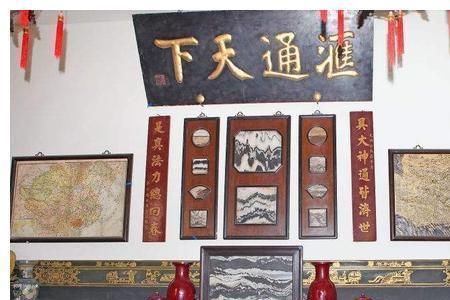 滙通天下
具大神通皆濟世
是真法力總回春